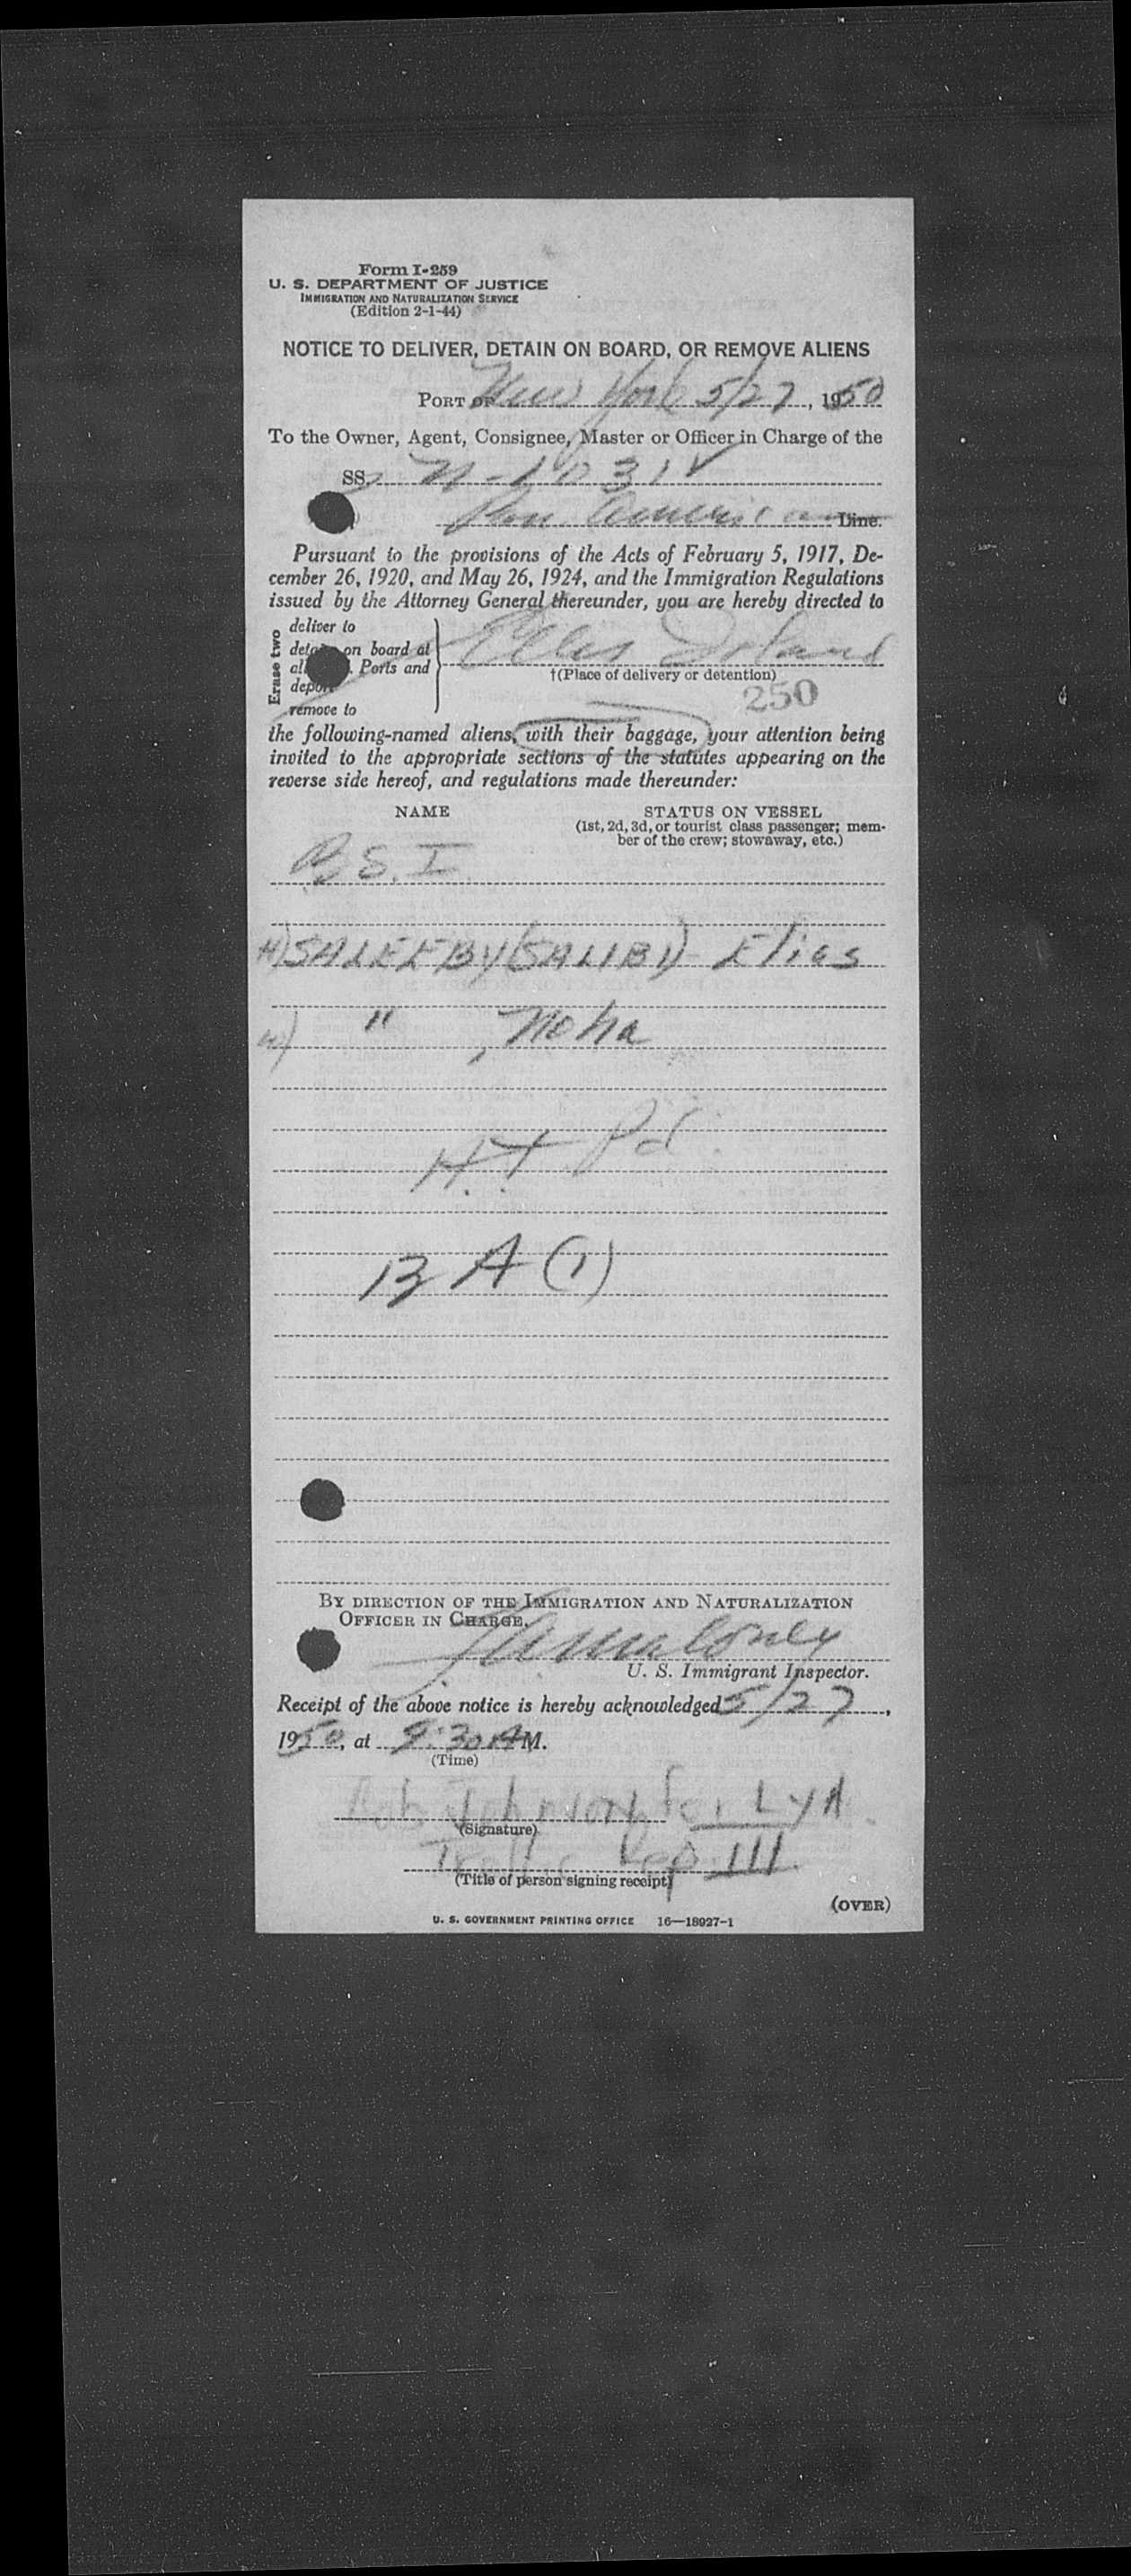 Form I-259
U. S. DEPARTMENT OF JUSTICE
IMMIGRATION AND NATURALIZATION SERVICE
(Edition 2-1-44)
NOTICE TO DELIVER, DETAIN ON BOARD, OR REMOVE ALIENS
PORT OF New York 5/27, 1950
To the Owner, Agent, Consignee, Master or Officer in Charge of the
SS. N-1031V
Pan American Line.
Pursuant to the provisions of the Acts of February 5, 1917, De-
cember 26, 1920, and May 26, 1924, and the Immigration Regulations
issued by the Attorney General thereunder, you are hereby directed to
Erase two
deliver to
on board at
Ports and
remove to
Ellis Island
†(Place of delivery or detention)
250
the following-named aliens, with their baggage, your attention being
invited to the appropriate sections of the statutes appearing on the
reverse side hereof, and regulations made thereunder:
NAME
STATUS ON VESSEL
(1st, 2d, 3d, or tourist class passenger; mem-
ber of the crew; stowaway, etc.)
B.S.I.
H) SALEEBY (SALIBY) - Elias
w) " , Noha
H.T. Pd.
13 A (1)
BY DIRECTION OF THE IMMIGRATION AND NATURALIZATION
OFFICER IN CHARGE.
Maloney
U. S. Immigrant Inspector.
Receipt of the above notice is hereby acknowledged 5/27,
1950, at 9:30 AM.
(Time)
Johnson
(Signature)
Traffic Rep. III
(Title of person signing receipt)
(OVER)
U. S. GOVERNMENT PRINTING OFFICE 16—18927-1